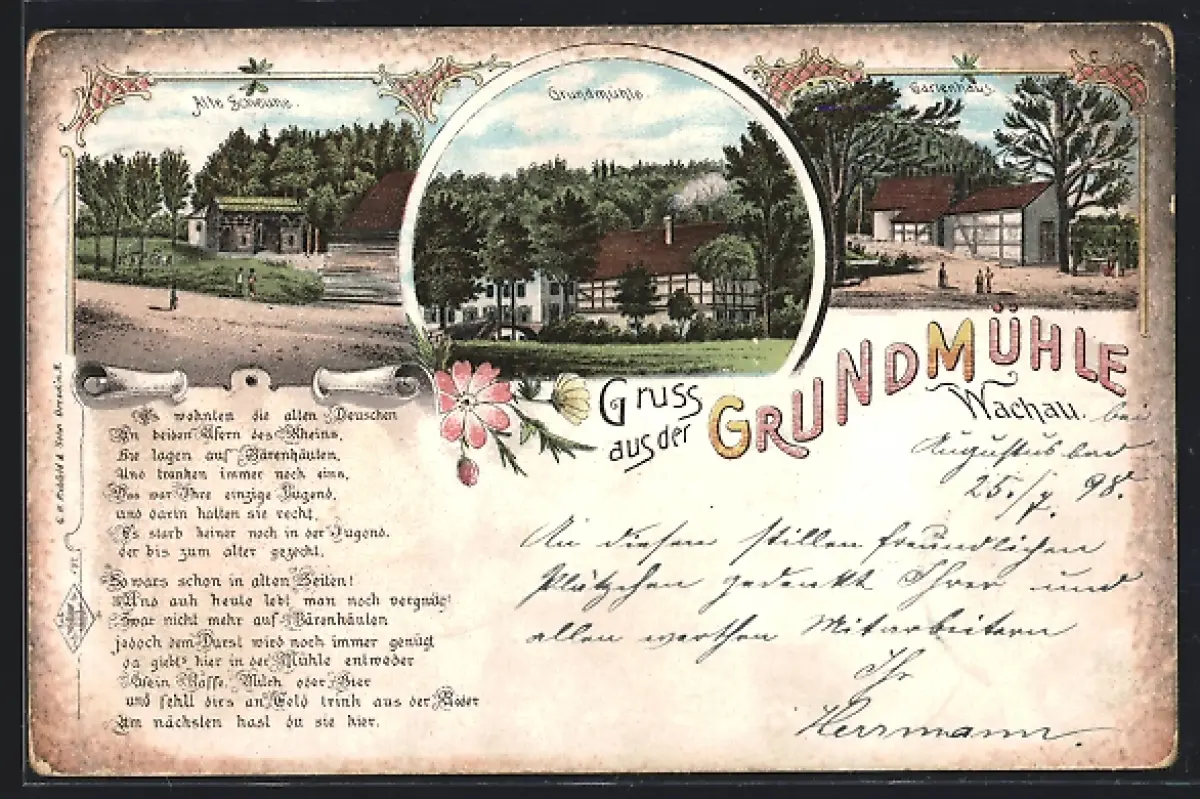 Alte Scheune.
Grundmühle.
Gartenhaus.
Gruss
aus der
GRUNDMÜHLE
Wachau. bei
Augustusbad
25./7. 98.
Es wohnten die alten Deuschen
An beiden Ufern des Rheins,
Sie lagen auf Bärenhäuten,
Und tranken immer noch eins,
Das war Ihre einzige Tugend,
und darin hatten sie recht,
Es starb keiner noch in der Jugend,
der bis zum alter gezecht.
So wars schon in alten Zeiten!
Und auh heute lebt man noch vergnügt
Zwar nicht mehr auf Bärenhäuten
jedoch dem Durst wird noch immer genügt
da giebts hier in der Mühle entweder
Wein, Kaffe, Milch oder Bier
und fehlt dirs an Geld trink aus der Röder
Am nächsten hast du sie hier.
An diesem stillen freundlichen
Plätzchen gedenkt Ihrer und
allen werthen Mitarbeitern
Ihr
Herrmann.
& Sohn Dresden